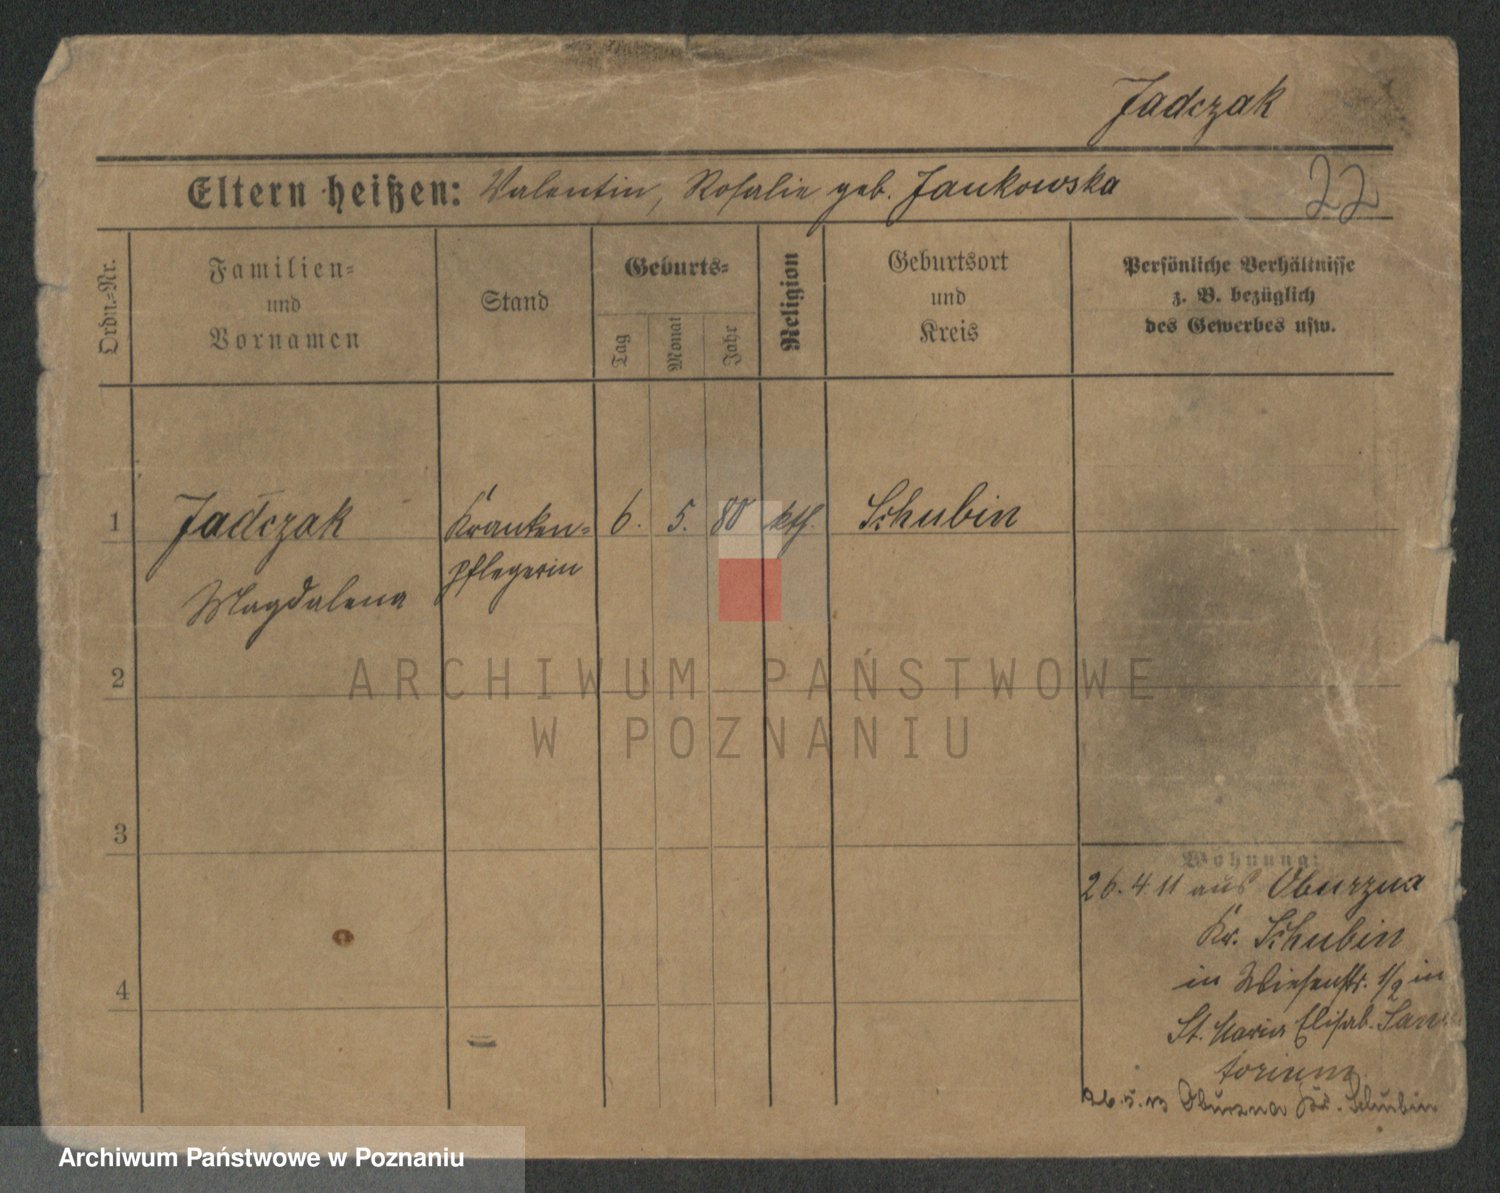 Jadczak
Eltern heißen: Valentin, Rosalie geb. Jankowska
22
Ordn.-Nr.
Familien-
und
Vornamen
Stand
Geburts-
Tag
Monat
Jahr
Religion
Geburtsort
und
Kreis
Persönliche Verhältnisse
z. B. bezüglich
des Gewerbes usw.
1 Jadczak Kranken- 6. 5. 80 kth. Schubin
pflegerin
Magdalena
2
ARCHIWUM PAŃSTWOWE
W POZNANIU
3
Wohnung:
26.4 11 aus Oburzna
Kr. Schubin
in Wiesenstr. 1/2 in
4
St. Maria Elisab. Sana
torium
26.5.13 Oburzna Kr. Schubin
Archiwum Państwowe w Poznaniu